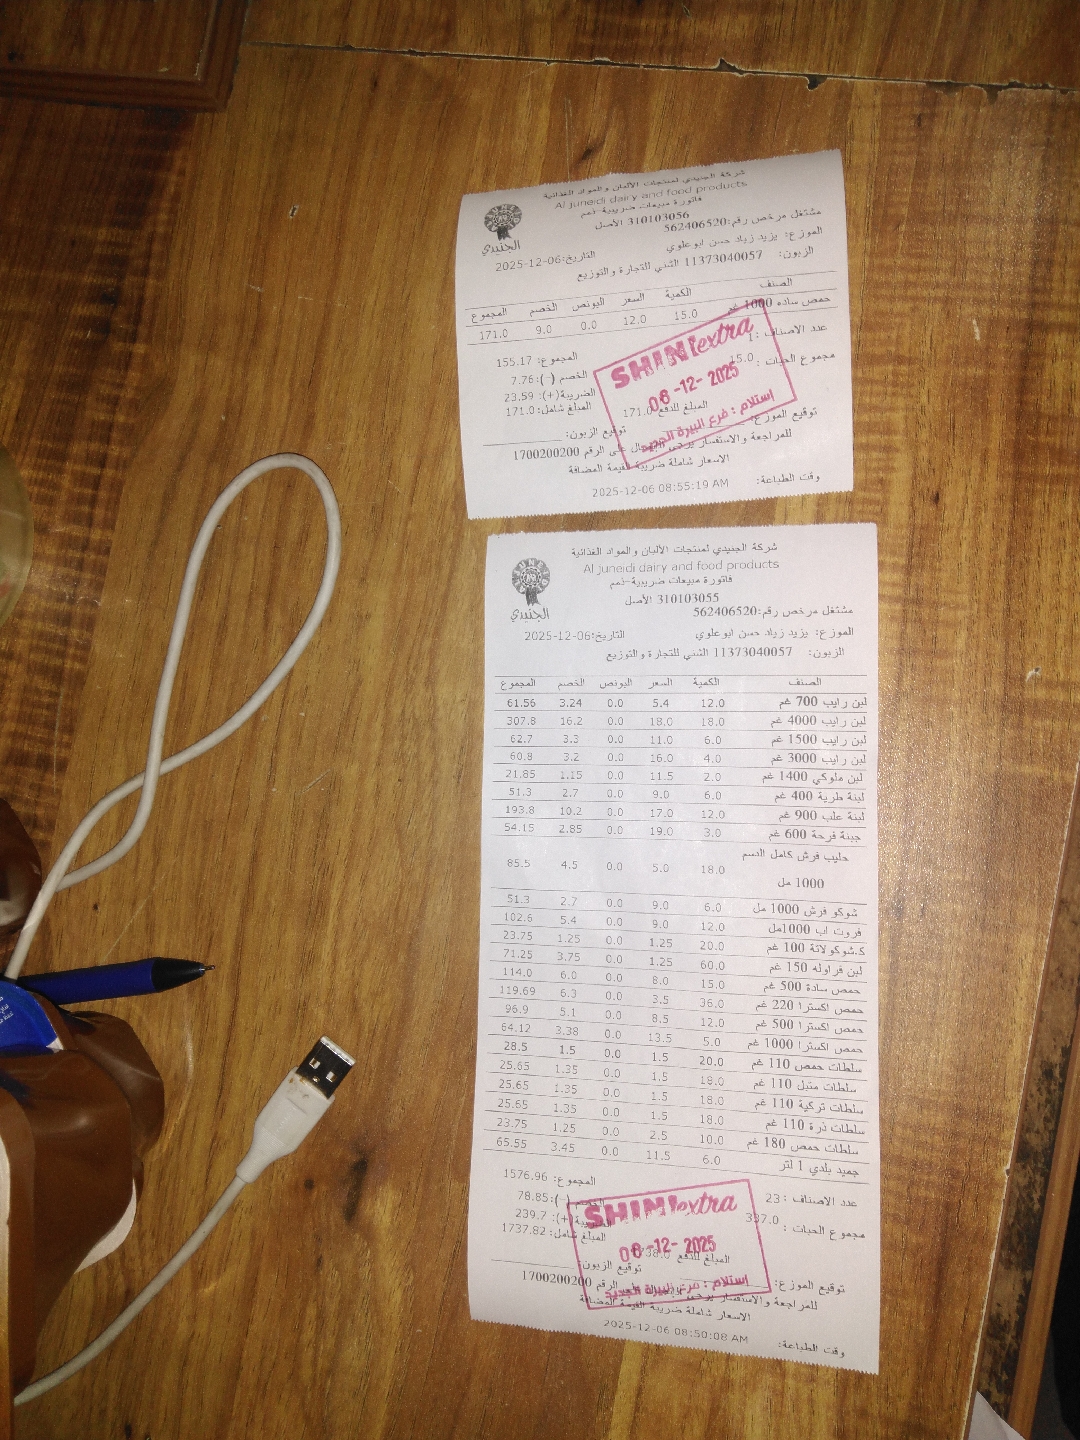 شركة الجنيدي لمنتجات الألبان والمواد الغذائية
Al Juneidi dairy and food products
فاتورة مبيعات ضريبية-ذمم
310103056 الأصل
مشتغل مرخص رقم:562406520
الجنيدي
الموزع: يزيد زياد حسن ابوعلوي
التاريخ:2025-12-06
الزبون: 11373040057 الشني للتجارة والتوزيع
الصنف الكمية السعر البونص الخصم المجموع
حمص ساده 1000 غم 15.0 12.0 0.0 9.0 171.0
عدد الاصناف :1
المجموع: 155.17
مجموع الحبات : 15.0
الخصم (-):7.76
الضريبة(+): 23.59
المبلغ شامل: 171.0
المبلغ للدفع 171.0
توقيع الموزع:
توقيع الزبون:
للمراجعة والاستفسار يرجى الاتصال على الرقم 1700200200
الاسعار شاملة ضريبة القيمة المضافة
وقت الطباعة: 2025-12-06 08:55:19 AM
SHINI extra
06-12-2025
إستلام : فرع البيرة الجديد
شركة الجنيدي لمنتجات الألبان والمواد الغذائية
Al juneidi dairy and food products
فاتورة مبيعات ضريبية-ذمم
310103055 الأصل
مشتغل مرخص رقم:562406520
الجنيدي
الموزع: يزيد زياد حسن ابوعلوي
التاريخ:2025-12-06
الزبون: 11373040057 الشني للتجارة والتوزيع
الصنف الكمية السعر البونص الخصم المجموع
لبن رايب 700 غم 12.0 5.4 0.0 3.24 61.56
لبن رايب 4000 غم 18.0 18.0 0.0 16.2 307.8
لبن رايب 1500 غم 6.0 11.0 0.0 3.3 62.7
لبن رايب 3000 غم 4.0 16.0 0.0 3.2 60.8
لبن ملوكي 1400 غم 2.0 11.5 0.0 1.15 21.85
لبنة طرية 400 غم 6.0 9.0 0.0 2.7 51.3
لبنة علب 900 غم 12.0 17.0 0.0 10.2 193.8
جبنة فرحة 600 غم 3.0 19.0 0.0 2.85 54.15
حليب فرش كامل الدسم
1000 مل 18.0 5.0 0.0 4.5 85.5
شوكو فرش 1000 مل 6.0 9.0 0.0 2.7 51.3
فروت اب 1000مل 12.0 9.0 0.0 5.4 102.6
ك.شوكولاتة 100 غم 20.0 1.25 0.0 1.25 23.75
لبن فراوله 150 غم 60.0 1.25 0.0 3.75 71.25
حمص سادة 500 غم 15.0 8.0 0.0 6.0 114.0
حمص اكسترا 220 غم 36.0 3.5 0.0 6.3 119.69
حمص اكسترا 500 غم 12.0 8.5 0.0 5.1 96.9
حمص اكسترا 1000 غم 5.0 13.5 0.0 3.38 64.12
سلطات حمص 110 غم 20.0 1.5 0.0 1.5 28.5
سلطات متبل 110 غم 18.0 1.5 0.0 1.35 25.65
سلطات تركية 110 غم 18.0 1.5 0.0 1.35 25.65
سلطات ذرة 110 غم 18.0 1.5 0.0 1.35 25.65
سلطات حمص 180 غم 10.0 2.5 0.0 1.25 23.75
جميد بلدي 1 لتر 6.0 11.5 0.0 3.45 65.55
عدد الاصناف : 23
المجموع: 1576.96
مجموع الحبات : 337.0
الخصم (-):78.85
الضريبة (+): 239.7
المبلغ شامل: 1737.82
المبلغ للدفع 1738.0
توقيع الموزع:
توقيع الزبون:
للمراجعة والاستفسار يرجى الاتصال على الرقم 1700200200
الاسعار شاملة ضريبة القيمة المضافة
وقت الطباعة: 2025-12-06 08:50:08 AM
SHINI extra
06-12-2025
إستلام : فرع البيرة الجديد